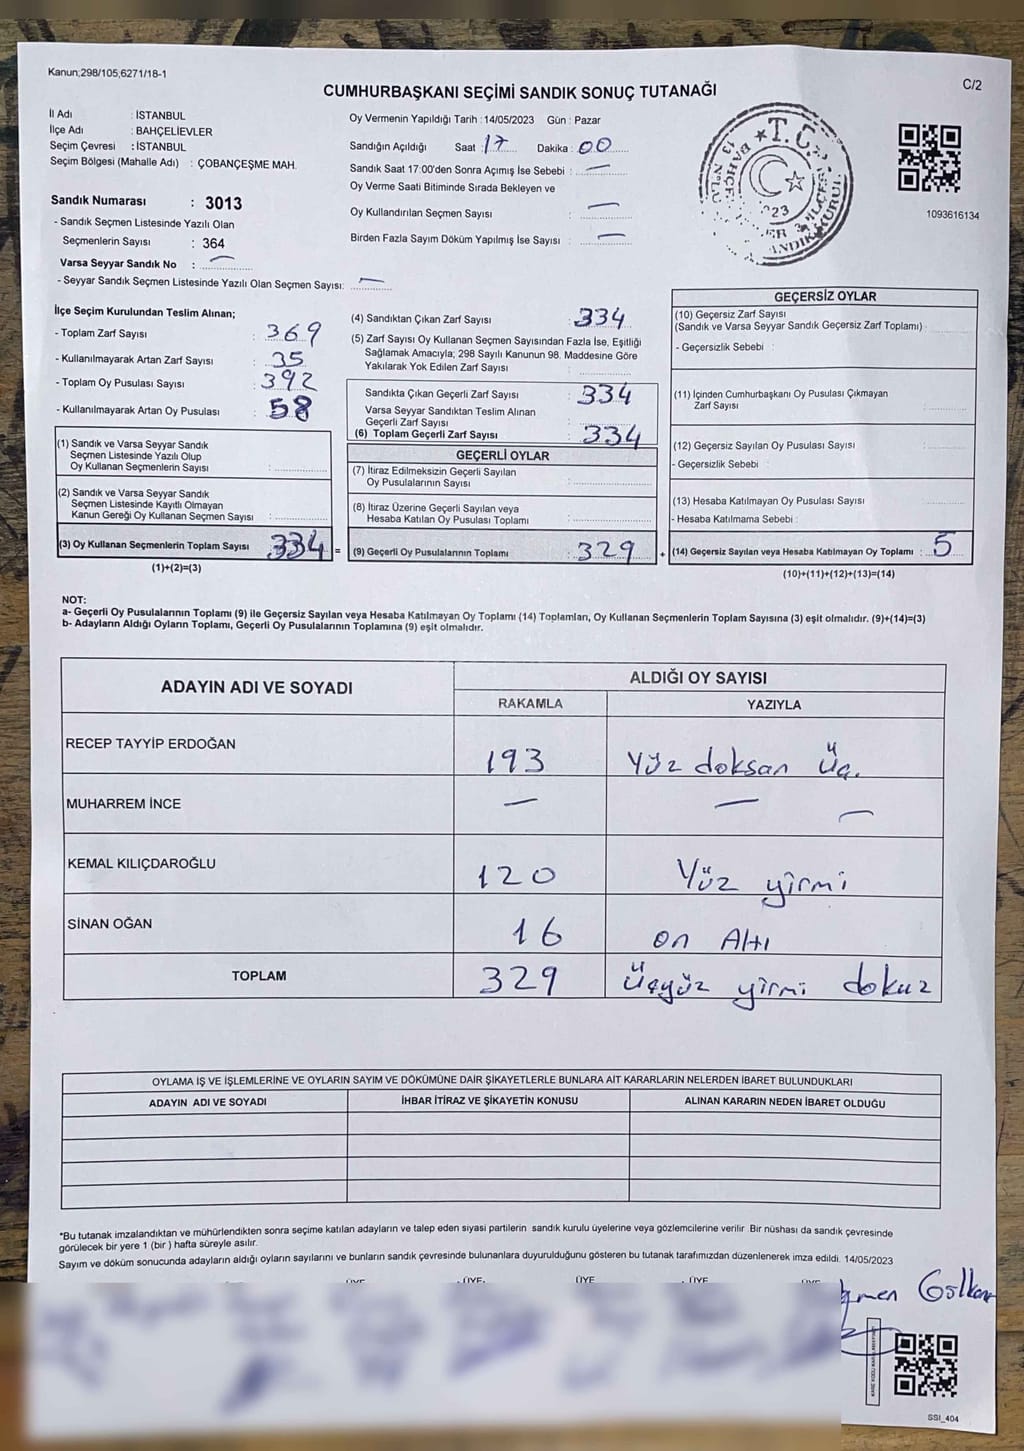 Kanun;298/105;6271/18-1
C/2
CUMHURBAŞKANI SEÇİMİ SANDIK SONUÇ TUTANAĞI
İl Adı : İSTANBUL
İlçe Adı : BAHÇELİEVLER
Seçim Çevresi : İSTANBUL
Seçim Bölgesi (Mahalle Adı) : ÇOBANÇEŞME MAH.
Sandık Numarası : 3013
- Sandık Seçmen Listesinde Yazılı Olan
Seçmenlerin Sayısı : 364
Varsa Seyyar Sandık No : —
- Seyyar Sandık Seçmen Listesinde Yazılı Olan Seçmen Sayısı: —
Oy Vermenin Yapıldığı Tarih : 14/05/2023 Gün : Pazar
Sandığın Açıldığı Saat : 17 Dakika : 00
Sandık Saat 17:00'den Sonra Açımış İse Sebebi : —
Oy Verme Saati Bitiminde Sırada Bekleyen ve
Oy Kullandırılan Seçmen Sayısı : —
Birden Fazla Sayım Döküm Yapılmış İse Sayısı : —
T.C.
1093616134
İlçe Seçim Kurulundan Teslim Alınan;
- Toplam Zarf Sayısı : 369
- Kullanılmayarak Artan Zarf Sayısı : 35
- Toplam Oy Pusulası Sayısı : 392
- Kullanılmayarak Artan Oy Pusulası : 58
(1) Sandık ve Varsa Seyyar Sandık
Seçmen Listesinde Yazılı Olup
Oy Kullanan Seçmenlerin Sayısı :
(2) Sandık ve Varsa Seyyar Sandık
Seçmen Listesinde Kayıtlı Olmayan
Kanun Gereği Oy Kullanan Seçmen Sayısı :
(3) Oy Kullanan Seçmenlerin Toplam Sayısı 334 =
(1)+(2)=(3)
(4) Sandıktan Çıkan Zarf Sayısı : 334
(5) Zarf Sayısı Oy Kullanan Seçmen Sayısından Fazla İse, Eşitliği
Sağlamak Amacıyla; 298 Sayılı Kanunun 98. Maddesine Göre
Yakılarak Yok Edilen Zarf Sayısı :
Sandıkta Çıkan Geçerli Zarf Sayısı : 334
Varsa Seyyar Sandıktan Teslim Alınan
Geçerli Zarf Sayısı :
(6) Toplam Geçerli Zarf Sayısı : 334
GEÇERLİ OYLAR
(7) İtiraz Edilmeksizin Geçerli Sayılan
Oy Pusulalarının Sayısı :
(8) İtiraz Üzerine Geçerli Sayılan veya
Hesaba Katılan Oy Pusulası Toplamı :
(9) Geçerli Oy Pusulalarının Toplamı : 329 +
GEÇERSİZ OYLAR
(10) Geçersiz Zarf Sayısı
(Sandık ve Varsa Seyyar Sandık Geçersiz Zarf Toplamı) :
- Geçersizlik Sebebi :
(11) İçinden Cumhurbaşkanı Oy Pusulası Çıkmayan
Zarf Sayısı :
(12) Geçersiz Sayılan Oy Pusulası Sayısı :
- Geçersizlik Sebebi :
(13) Hesaba Katılmayan Oy Pusulası Sayısı :
- Hesaba Katılmama Sebebi :
(14) Geçersiz Sayılan veya Hesaba Katılmayan Oy Toplamı : 5
(10)+(11)+(12)+(13)=(14)
NOT:
a- Geçerli Oy Pusulalarının Toplamı (9) ile Geçersiz Sayılan veya Hesaba Katılmayan Oy Toplamı (14) Toplamları, Oy Kullanan Seçmenlerin Toplam Sayısına (3) eşit olmalıdır. (9)+(14)=(3)
b- Adayların Aldığı Oyların Toplamı, Geçerli Oy Pusulalarının Toplamına (9) eşit olmalıdır.
ADAYIN ADI VE SOYADI
ALDIĞI OY SAYISI
RAKAMLA YAZIYLA
RECEP TAYYİP ERDOĞAN 193 Yüz doksan üç.
MUHARREM İNCE — — —
KEMAL KILIÇDAROĞLU 120 Yüz yirmi
SİNAN OĞAN 16 on Altı
TOPLAM 329 Üçyüz yirmi dokuz
OYLAMA İŞ VE İŞLEMLERİNE VE OYLARIN SAYIM VE DÖKÜMÜNE DAİR ŞİKAYETLERLE BUNLARA AİT KARARLARIN NELERDEN İBARET BULUNDUKLARI
ADAYIN ADI VE SOYADI İHBAR İTİRAZ VE ŞİKAYETİN KONUSU ALINAN KARARIN NEDEN İBARET OLDUĞU
*Bu tutanak imzalandıktan ve mühürlendikten sonra seçime katılan adayların ve talep eden siyasi partilerin sandık kurulu üyelerine veya gözlemcilerine verilir. Bir nüshası da sandık çevresinde
görülecek bir yere 1 (bir) hafta süreyle asılır.
Sayım ve döküm sonucunda adayların aldığı oyların sayılarını ve bunların sandık çevresinde bulunanlara duyurulduğunu gösteren bu tutanak tarafımızdan düzenlenerek imza edildi. 14/05/2023
ÜYE ÜYE ÜYE ÜYE ÜYE
SSI_404